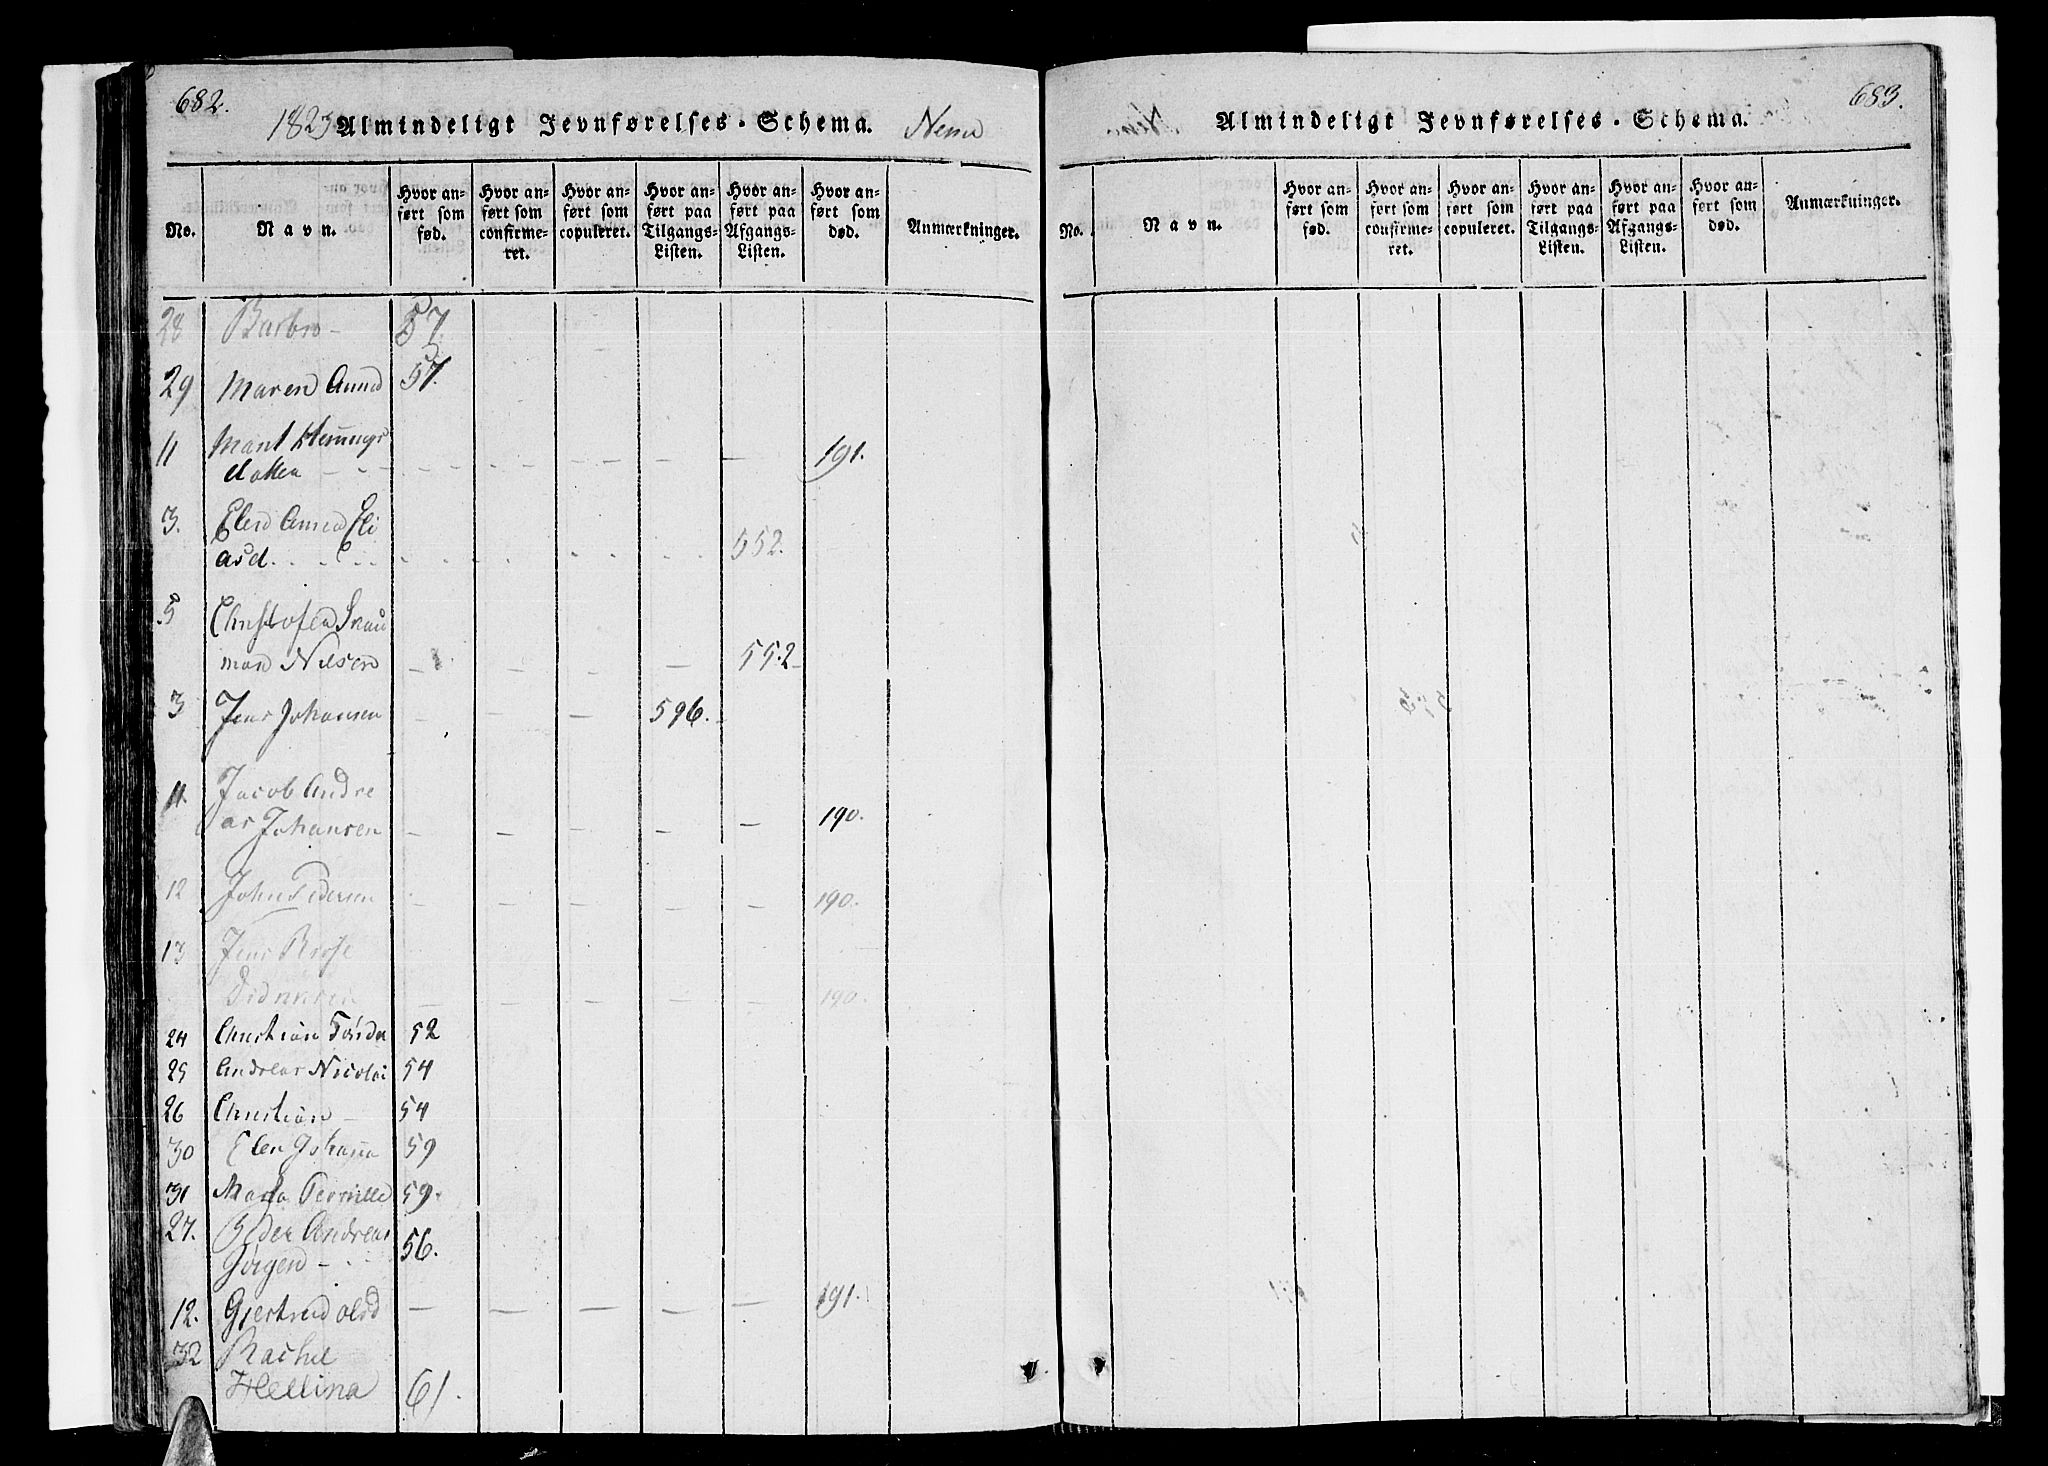 682.
1823 Almindeligt Jevnførelses-Schema.
No.
Navn.
Hvor an-
ført som
fød.
Hvor an-
ført som
confirme-
ret.
Hvor an-
ført som
copuleret.
Hvor an-
ført paa
Tilgangs-
Listen.
Hvor an-
ført paa
Afgangs-
Listen.
Hvor an-
ført som
død.
Anmærkninger.
28 Barbro - 57.
29 Maren Anna 57.
11 Hemings
datter - - - - - - - 191.
3. Elen Anna Eli
asd. - - - - - - - 552.
5 Christofer
man Nilsen - - - - 552
3 Jens Johansen - - - 596.
11. Jacob Andre
as Johansen - - - - - 190.
12 John Pedersen - - - - 190.
13 Jens
Didriksen - - - - - 190.
24 Christian 52
25 Andreas Nicolai 54
26 Christian - 54
30 Elen Johanna 59
31 Pernille 59.
27. Peder Andreas
Jørgen - - - 56.
12. Gjertrud olsd - - - - - 191.
32 Rachel
Hellina 61.
683.
Almindeligt Jevnførelses-Schema.
No.
Navn.
Hvor an-
ført som
fød.
Hvor an-
ført som
confirme-
ret.
Hvor an-
ført som
copuleret.
Hvor an-
ført paa
Tilgangs-
Listen.
Hvor an-
ført paa
Afgangs-
Listen.
Hvor an-
ført som
død.
Anmærkninger.